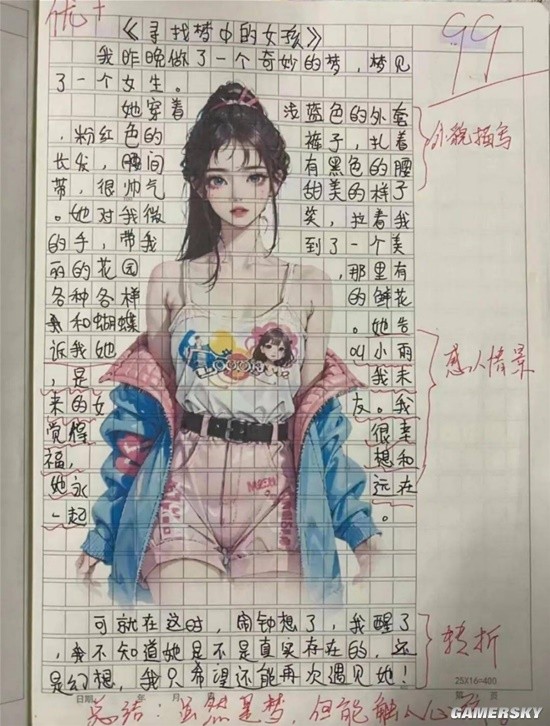 优+
《寻找梦中的女孩》
99
我昨晚做了一个奇妙的梦，梦见
了一个女生。
她穿着浅蓝色的外套
，粉红色的裤子，扎着
长发，腰间有黑色的腰
带，很帅气甜美的样子
。她对我微笑，拉着我
的手，带我到了一个美
丽的花园，那里有
各种各样的鲜花
和蝴蝶。她告
诉我她叫小雨
，是我未
来的女友。我
觉得很幸
福，想和
她永远在
一起。
外貌描写
感人情景
可就在这时，闹钟想了，我醒了
，我不知道她是不是真实存在的，还
是幻想，我只希望还能再次遇见她！
转折
25X16=400
日期 年 月
总结：虽然是梦，但能
GAMERSKY